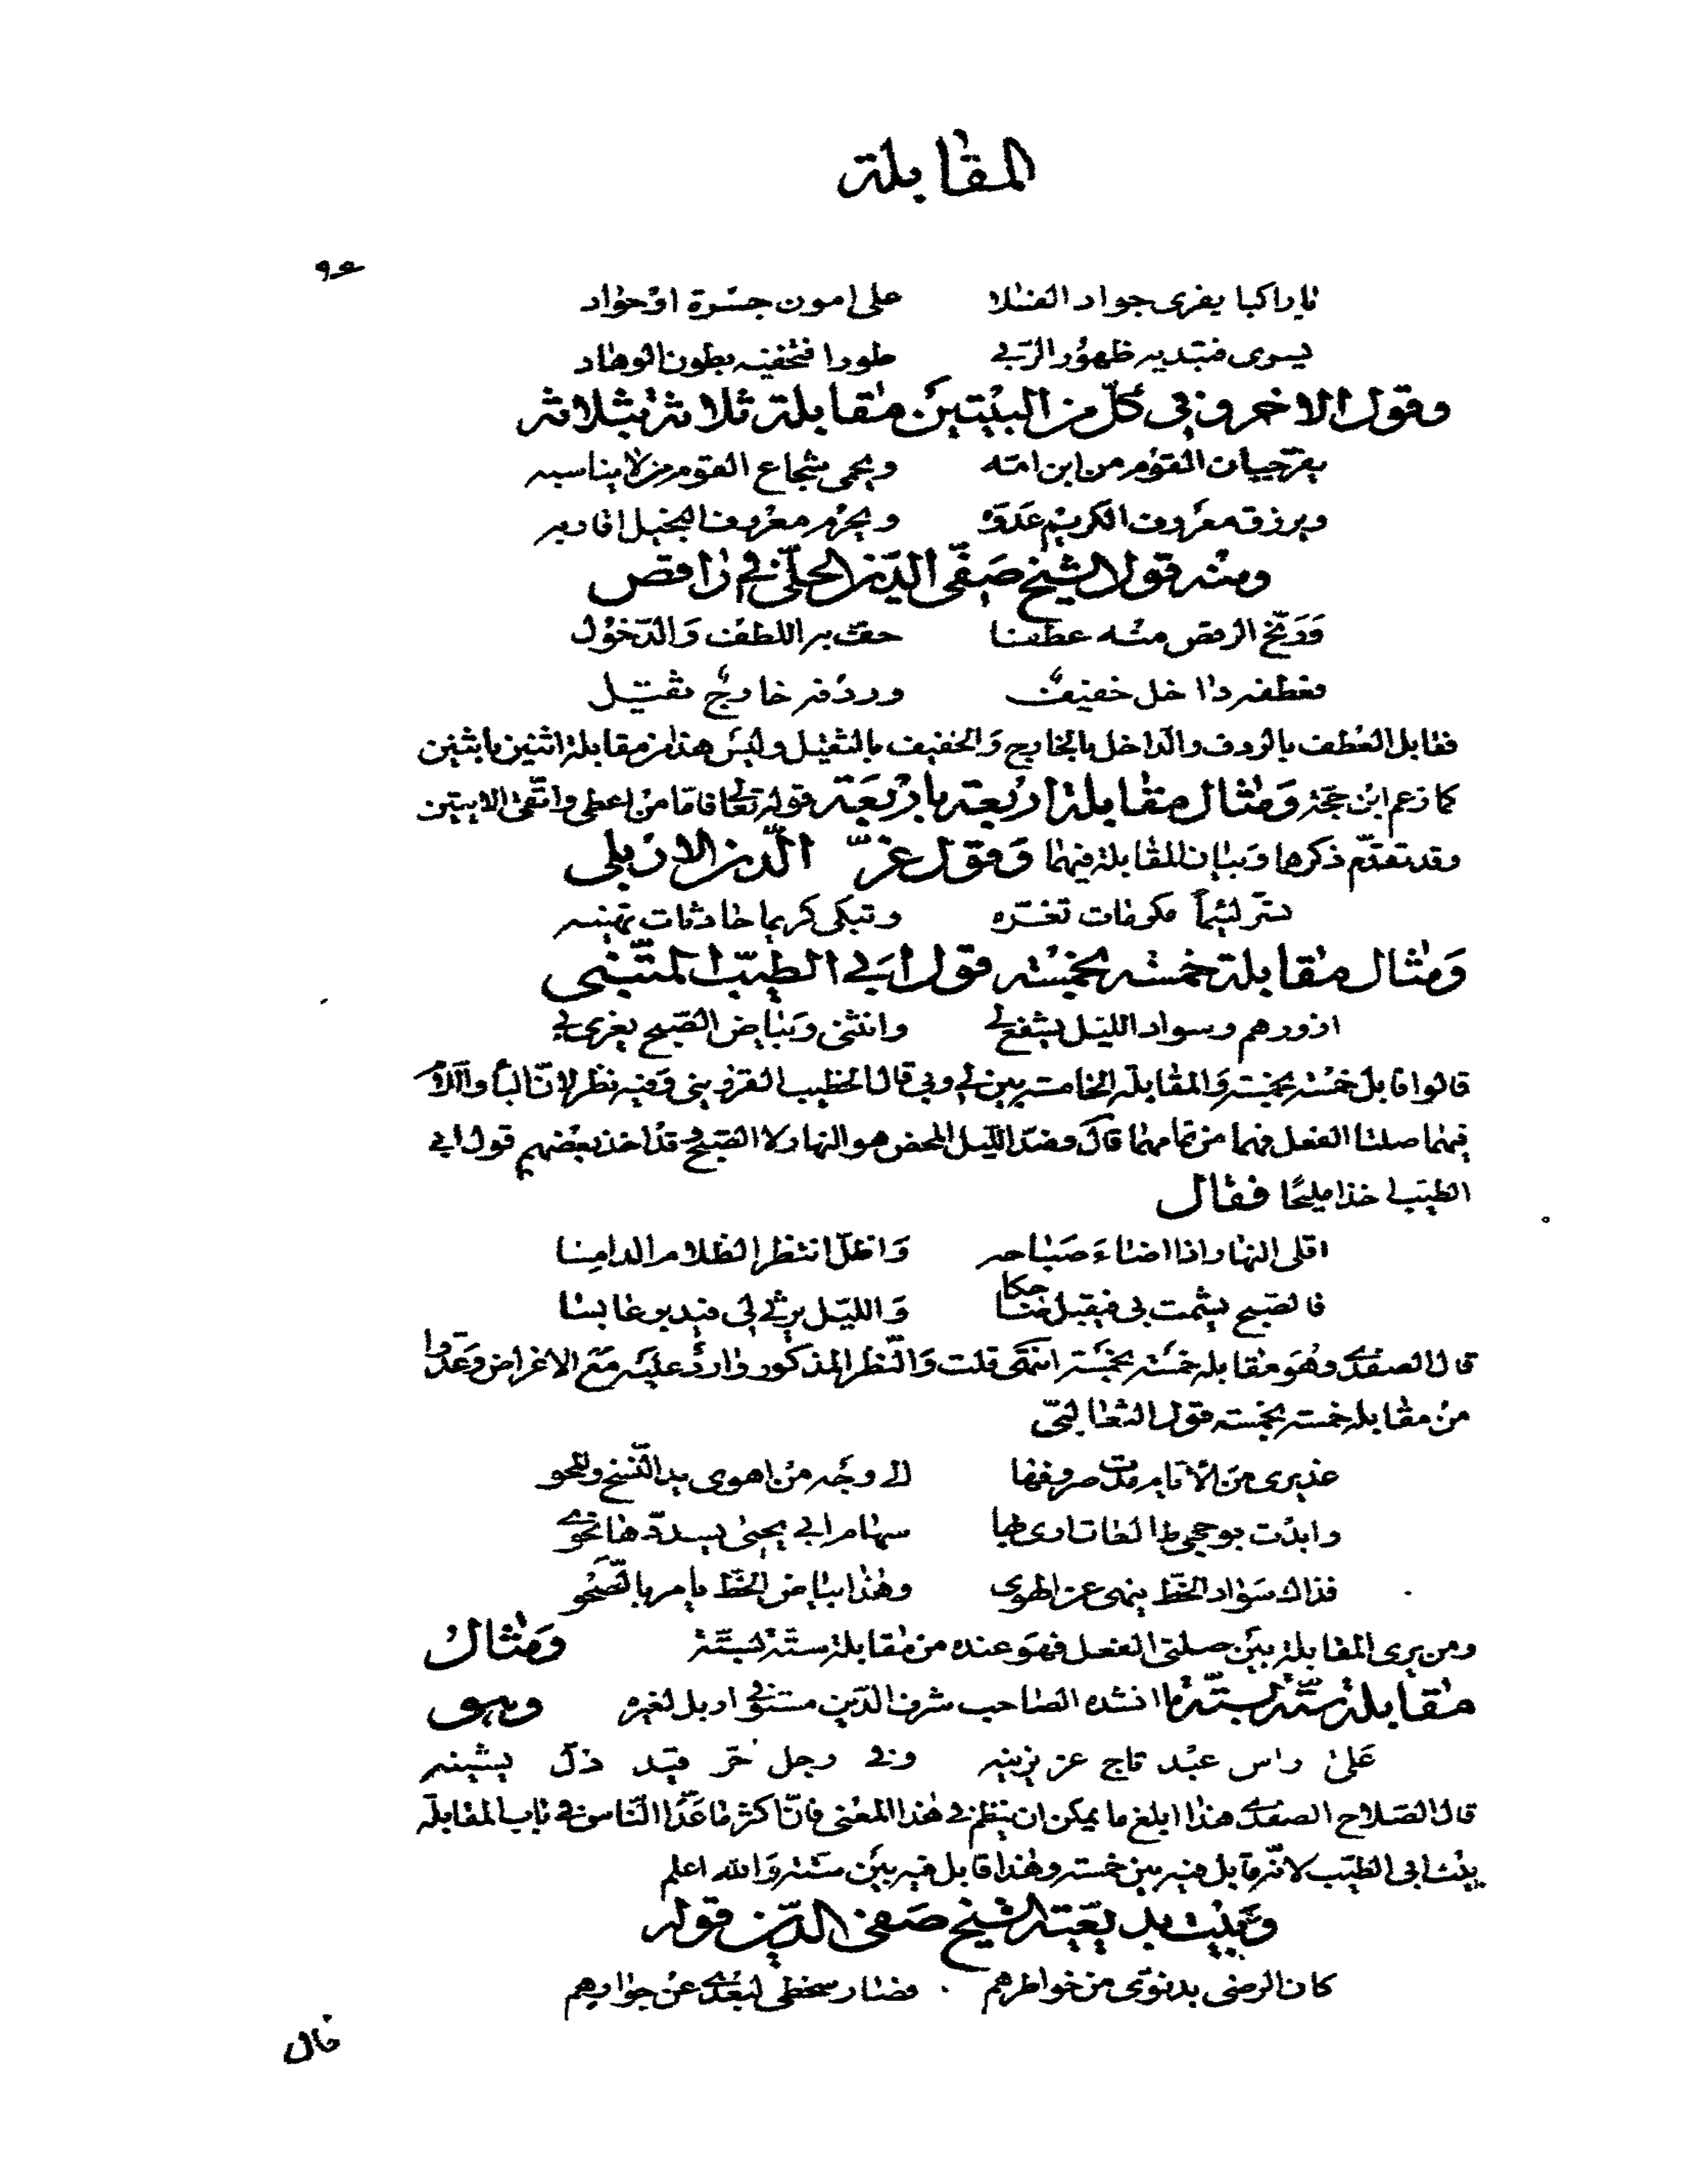 المقابلة
يا راكبا يفرى جواد الفلا على امون جسرة او جواد
يسرى فتبديه ظهور الربى طورا فتخفيه بطون الوهاد
وقول الاخر وفي كل من البيتين مقابلة ثلاثة بثلاثة
يفر جبان القوم من ابن امه ويحمى شجاع القوم من لا يناسبه
ويرزق معروف الكريم عدوه ويحرم معروف البخيل اقاربه
ومنه قول الشيخ صفى الدين الحلى فى راقص
ورنح الرقص منه عطفا حف به اللطف والدخول
فعطفه داخل خفيف وردفه خارج ثقيل
فقابل العطف بالردف والداخل بالخارج والخفيف بالثقيل وليس هذا من مقابلة اثنين باثنين
كما زعم ابن حجة ومثال مقابلة اربعة باربعة قوله تعالى فاما من اعطى واتقى الايتين
وقد تقدم ذكرها وبيان المقابلة فيهما وقول عز الدين الاربلى
تسر لئيما مكرمات تعزه وتبكى كريما حادثات تهينه
ومثال مقابلة خمسة بخمسة قول ابى الطيب المتنبى
ازورهم وسواد الليل يشفع لى وانثنى وبياض الصبح يغرى بى
قالوا قابل خمسة بخمسة والمقابلة الخامسة بين لى وبى قال الخطيب القزوينى وفيه نظر لان الباء واللام
فيهما صلتا الفعل فهما من تمامهما قال وضد الليل المحض هو النهار لا الصبح وقد اخذ بعضهم قول ابى
الطيب اخذا مليحا فقال
اقلى النهار اذا اضاء صباحه واظل انتظر الظلام الدامسا
فالصبح يشمت بى فيقبل ضاحكا والليل يرثى لى فيدبر عابسا
قال الصفدى وهو مقابلة خمسة بخمسة انتهى قلت والنظر المذكور وارد عليه مع الاغراض وعدوا
من مقابلة خمسة بخمسة قول الثعالبى
عذيرى من الايام مدت صروفها الى وجه من اهوى يد النسخ والمحو
وابدت بوجهى طالعات ارى بها سهام ابى يحيى يسددها نحوى
فذاك سواد الخط ينهى عن الهوى وهذا بياض الخط يامر بالصحو
ومن يرى المقابلة بين صلتى الفعل فهو عنده من مقابلة ستة بستة ومثال
مقابلة ستة بستة ما انشده الصاحب شرف الدين مستوفى اربل لغيره وهو
على راس عبد تاج عز يزينه وفى رجل حر قيد ذل يشينه
قال الصلاح الصفدى هذا ابلغ ما يمكن ان ينظم فى هذا المعنى فان اكثر ما عد الناس فى باب المقابلة
بيت ابى الطيب لانه قابل فيه بين خمسة وهذا قابل فيه بين ستة والله اعلم
وبيت بديعية الشيخ صفى الدين قوله
كان الرضى بدنوى من خواطرهم فصار سخطى لبعدى عن جوارهم
قال